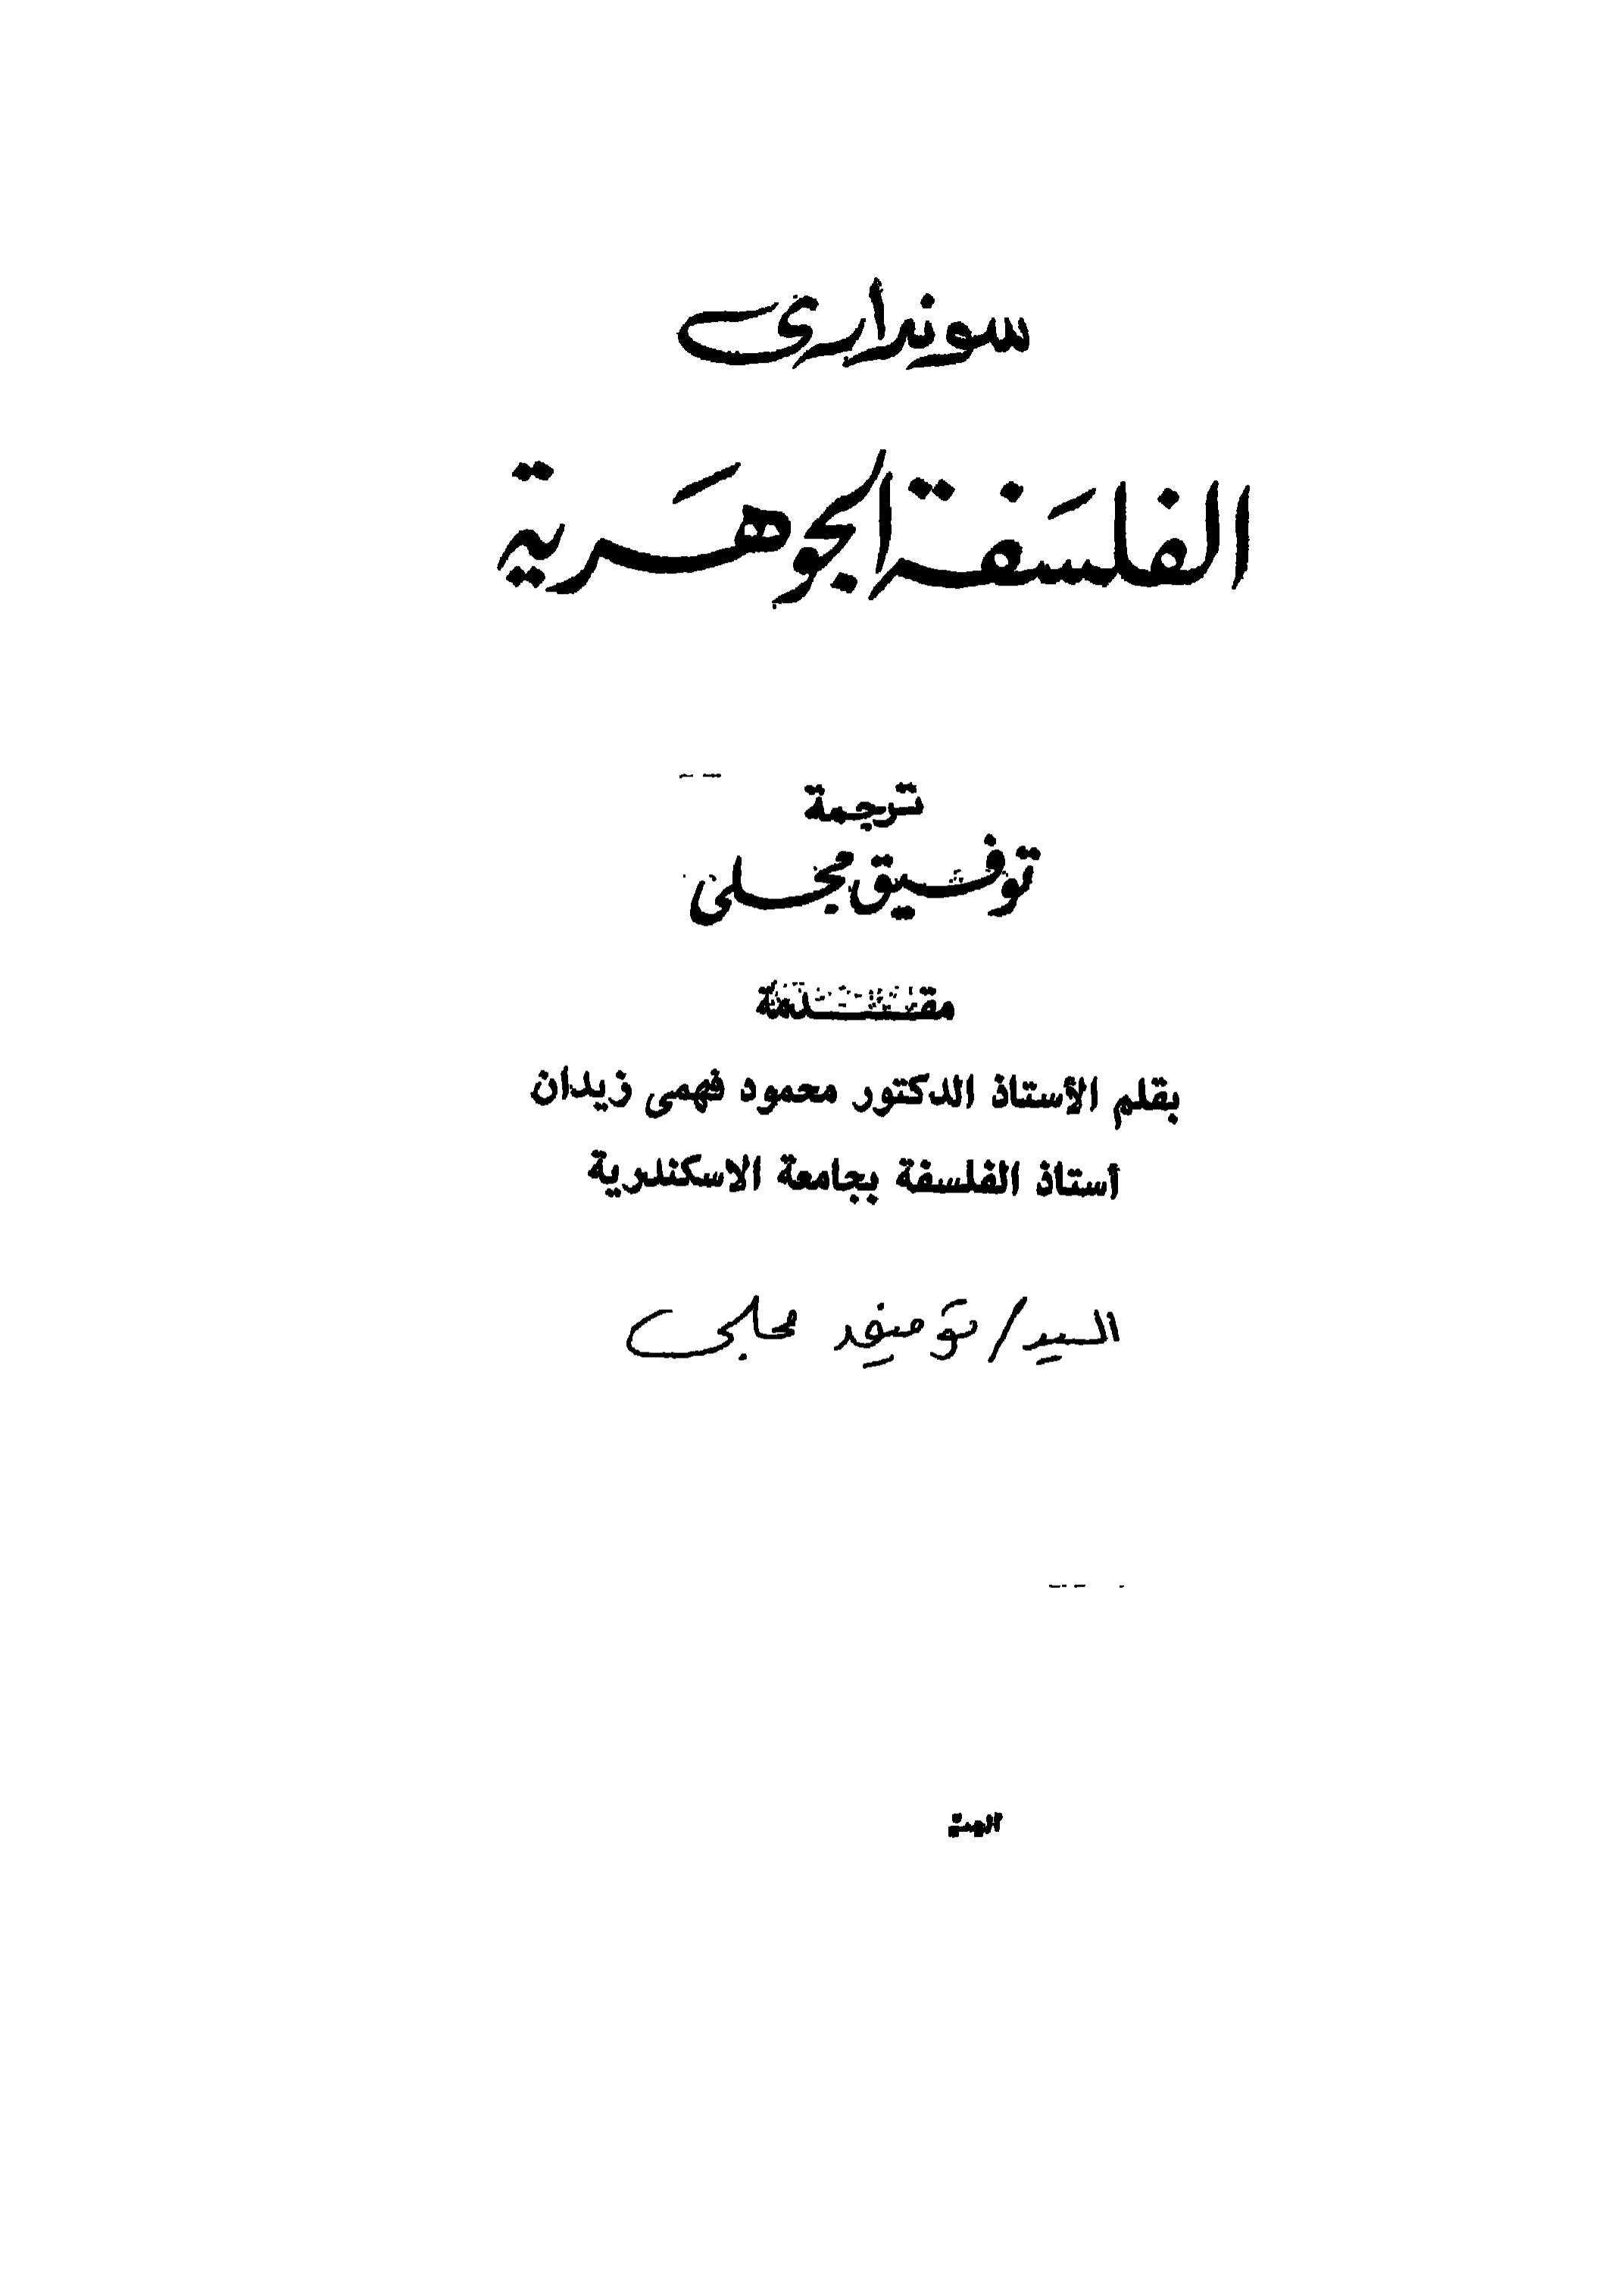 سوندارى
الفلسَفة الجوهَرية
ترجمة
توفيق مجلى
مقدمة
بقلم الأستاذ الدكتور محمود فهمى زيدان
أستاذ الفلسفة بجامعة الاسكندرية
السيد / توفيق مجلى